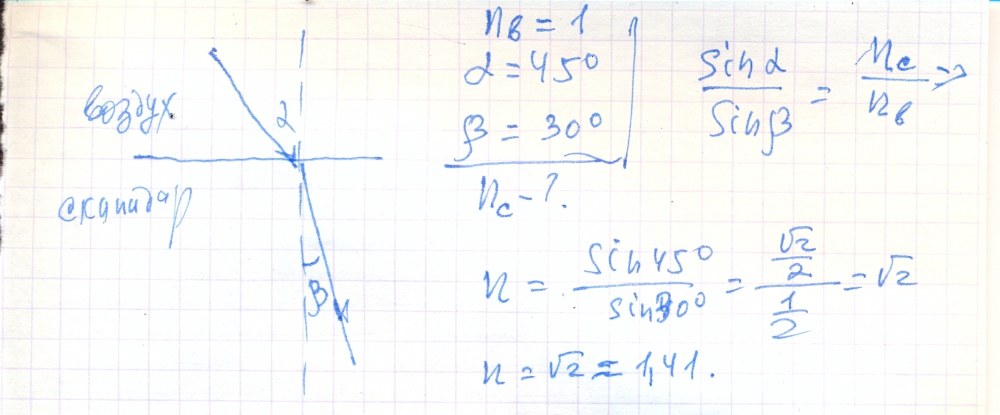 воздух
α
скипидар
β
nв = 1
α = 45°
β = 30°
nс - ?.
sinα / sinβ = nс / nв ⇒
n = sin45° / sin30° = (√2/2) / (1/2) = √2
n = √2 ≈ 1,41.